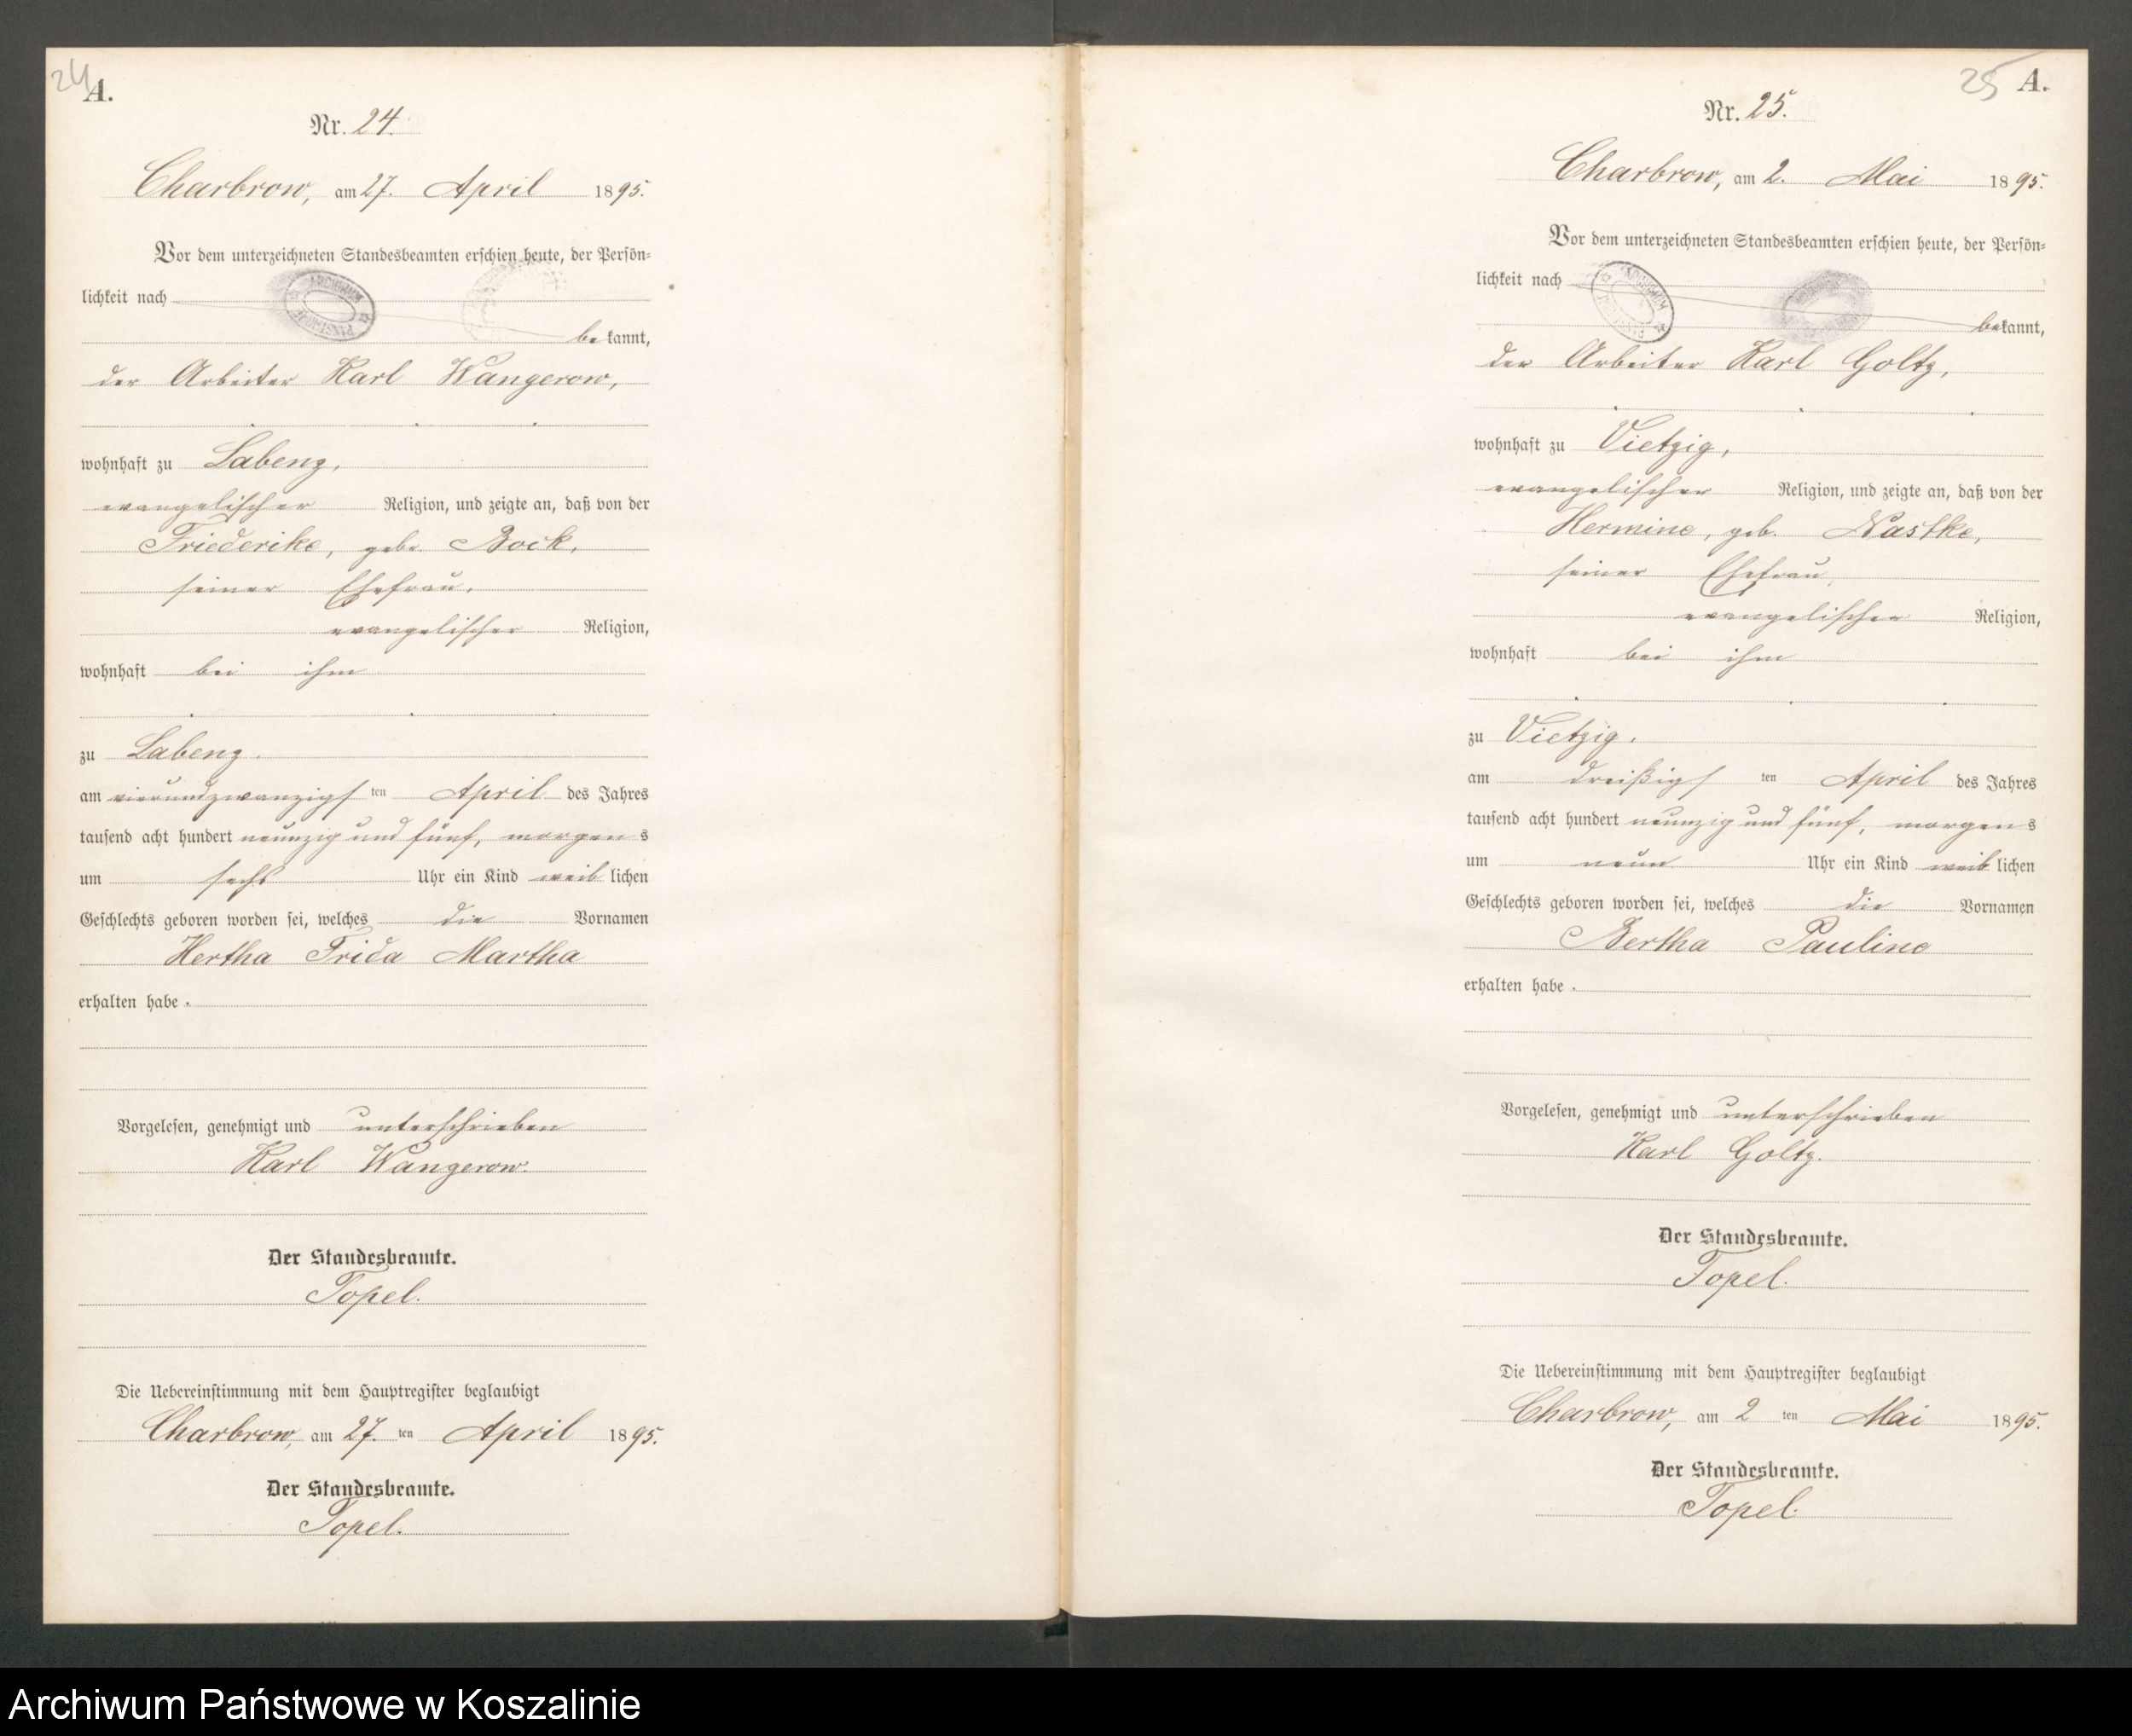 24
A.
Nr. 24.
Charbrow, am 27. April 1895.
Vor dem unterzeichneten Standesbeamten erschien heute, der Persön-
lichkeit nach
bekannt,
der Arbeiter Karl Wangerow,
wohnhaft zu Labenz,
evangelischer Religion, und zeigte an, daß von der
Friederike, geb. Bock,
seiner Ehefrau,
evangelischer Religion,
wohnhaft bei ihm
zu Labenz.
am vierundzwanzigsten April des Jahres
tausend acht hundert neunzig und fünf, morgens
um sechs Uhr ein Kind weiblichen
Geschlechts geboren worden sei, welches die Vornamen
Hertha Frida Martha
erhalten habe.
Vorgelesen, genehmigt und unterschrieben
Karl Wangerow.
Der Standesbeamte.
Topel.
Die Uebereinstimmung mit dem Hauptregister beglaubigt
Charbrow, am 27. ten April 1895.
Der Standesbeamte.
Topel.
25
A.
Nr. 25.
Charbrow, am 2. Mai 1895.
Vor dem unterzeichneten Standesbeamten erschien heute, der Persön-
lichkeit nach
ARCHIWUM
bekannt,
der Arbeiter Karl Goltz,
wohnhaft zu Vietzig,
evangelischer Religion, und zeigte an, daß von der
Hermine, geb. Nastke,
seiner Ehefrau,
evangelischer Religion,
wohnhaft bei ihm
zu Vietzig.
am dreißigsten April des Jahres
tausend acht hundert neunzig und fünf, morgens
um neun Uhr ein Kind weiblichen
Geschlechts geboren worden sei, welches die Vornamen
Bertha Pauline
erhalten habe.
Vorgelesen, genehmigt und unterschrieben
Karl Goltz.
Der Standesbeamte.
Topel.
Die Uebereinstimmung mit dem Hauptregister beglaubigt
Charbrow, am 2 ten Mai 1895.
Der Standesbeamte.
Topel.
Archiwum Państwowe w Koszalinie